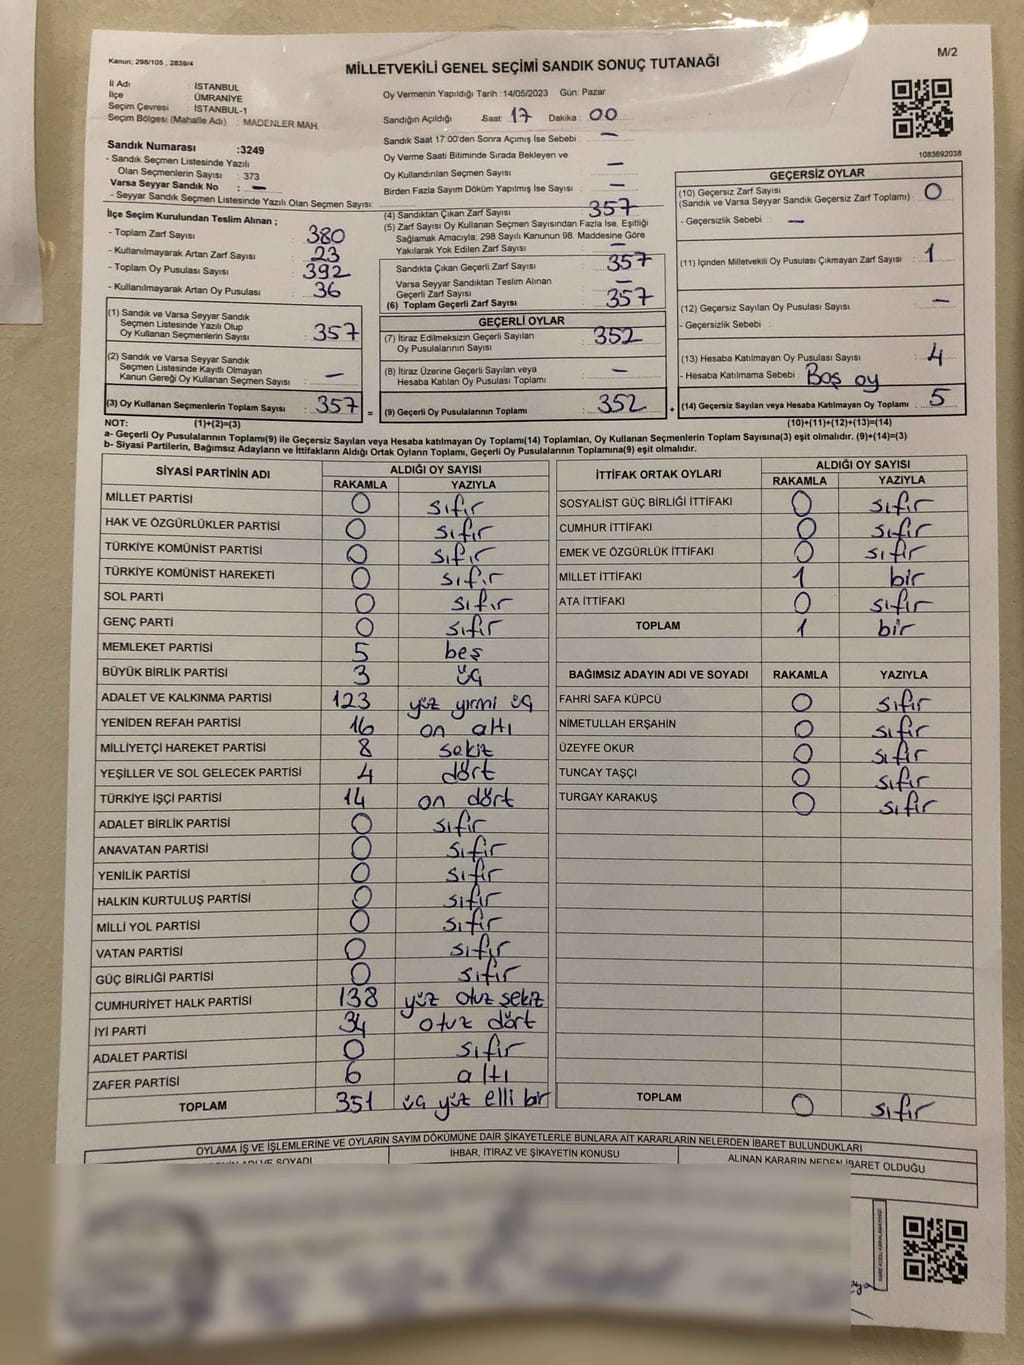 Kanun; 298/105 , 2839/4
M/2
MİLLETVEKİLİ GENEL SEÇİMİ SANDIK SONUÇ TUTANAĞI
İl Adı : İSTANBUL
İlçe : ÜMRANİYE
Seçim Çevresi : İSTANBUL-1
Seçim Bölgesi (Mahalle Adı) : MADENLER MAH.
Oy Vermenin Yapıldığı Tarih :14/05/2023 Gün: Pazar
Sandığın Açıldığı Saat: 17 Dakika : 00
Sandık Saat 17:00'den Sonra Açımış İse Sebebi : —
Oy Verme Saati Bitiminde Sırada Bekleyen ve
Oy Kullandırılan Seçmen Sayısı : —
Birden Fazla Sayım Döküm Yapılmış İse Sayısı : —
1083692038
Sandık Numarası :3249
- Sandık Seçmen Listesinde Yazılı
Olan Seçmenlerin Sayısı : 373
Varsa Seyyar Sandık No : —
- Seyyar Sandık Seçmen Listesinde Yazılı Olan Seçmen Sayısı:
İlçe Seçim Kurulundan Teslim Alınan ;
- Toplam Zarf Sayısı : 380
- Kullanılmayarak Artan Zarf Sayısı : 23
- Toplam Oy Pusulası Sayısı : 392
- Kullanılmayarak Artan Oy Pusulası : 36
(1) Sandık ve Varsa Seyyar Sandık
Seçmen Listesinde Yazılı Olup
Oy Kullanan Seçmenlerin Sayısı : 357
(2) Sandık ve Varsa Seyyar Sandık
Seçmen Listesinde Kayıtlı Olmayan
Kanun Gereği Oy Kullanan Seçmen Sayısı : —
(3) Oy Kullanan Seçmenlerin Toplam Sayısı : 357 =
(4) Sandıktan Çıkan Zarf Sayısı : 357
(5) Zarf Sayısı Oy Kullanan Seçmen Sayısından Fazla İse, Eşitliği
Sağlamak Amacıyla, 298 Sayılı Kanunun 98. Maddesine Göre
Yakılarak Yok Edilen Zarf Sayısı : —
Sandıkta Çıkan Geçerli Zarf Sayısı : 357
Varsa Seyyar Sandıktan Teslim Alınan
Geçerli Zarf Sayısı : —
(6) Toplam Geçerli Zarf Sayısı : 357
GEÇERLİ OYLAR
(7) İtiraz Edilmeksizin Geçerli Sayılan
Oy Pusulalarının Sayısı : 352
(8) İtiraz Üzerine Geçerli Sayılan veya
Hesaba Katılan Oy Pusulası Toplamı : —
(9) Geçerli Oy Pusulalarının Toplamı : 352 +
GEÇERSİZ OYLAR
(10) Geçersiz Zarf Sayısı
(Sandık ve Varsa Seyyar Sandık Geçersiz Zarf Toplamı) : 0
- Geçersizlik Sebebi : —
(11) İçinden Milletvekili Oy Pusulası Çıkmayan Zarf Sayısı : 1
(12) Geçersiz Sayılan Oy Pusulası Sayısı : —
- Geçersizlik Sebebi :
(13) Hesaba Katılmayan Oy Pusulası Sayısı : 4
- Hesaba Katılmama Sebebi : Boş oy
(14) Geçersiz Sayılan veya Hesaba Katılmayan Oy Toplamı : 5
NOT: (1)+(2)=(3) (10)+(11)+(12)+(13)=(14)
a- Geçerli Oy Pusulalarının Toplamı(9) ile Geçersiz Sayılan veya Hesaba katılmayan Oy Toplamı(14) Toplamları, Oy Kullanan Seçmenlerin Toplam Sayısına(3) eşit olmalıdır. (9)+(14)=(3)
b- Siyasi Partilerin, Bağımsız Adayların ve İttifakların Aldığı Ortak Oyların Toplamı, Geçerli Oy Pusulalarının Toplamına(9) eşit olmalıdır.
SİYASİ PARTİNİN ADI ALDIĞI OY SAYISI
RAKAMLA YAZIYLA
MİLLET PARTİSİ 0 sıfır
HAK VE ÖZGÜRLÜKLER PARTİSİ 0 sıfır
TÜRKİYE KOMÜNİST PARTİSİ 0 sıfır
TÜRKİYE KOMÜNİST HAREKETİ 0 sıfır
SOL PARTİ 0 sıfır
GENÇ PARTİ 0 sıfır
MEMLEKET PARTİSİ 5 beş
BÜYÜK BİRLİK PARTİSİ 3 üç
ADALET VE KALKINMA PARTİSİ 123 yüz yirmi üç
YENİDEN REFAH PARTİSİ 16 on altı
MİLLİYETÇİ HAREKET PARTİSİ 8 sekiz
YEŞİLLER VE SOL GELECEK PARTİSİ 4 dört
TÜRKİYE İŞÇİ PARTİSİ 14 on dört
ADALET BİRLİK PARTİSİ 0 sıfır
ANAVATAN PARTİSİ 0 sıfır
YENİLİK PARTİSİ 0 sıfır
HALKIN KURTULUŞ PARTİSİ 0 sıfır
MİLLİ YOL PARTİSİ 0 sıfır
VATAN PARTİSİ 0 sıfır
GÜÇ BİRLİĞİ PARTİSİ 0 sıfır
CUMHURİYET HALK PARTİSİ 138 yüz otuz sekiz
İYİ PARTİ 34 otuz dört
ADALET PARTİSİ 0 sıfır
ZAFER PARTİSİ 6 altı
TOPLAM 351 üç yüz elli bir
İTTİFAK ORTAK OYLARI ALDIĞI OY SAYISI
RAKAMLA YAZIYLA
SOSYALİST GÜÇ BİRLİĞİ İTTİFAKI 0 sıfır
CUMHUR İTTİFAKI 0 sıfır
EMEK VE ÖZGÜRLÜK İTTİFAKI 0 sıfır
MİLLET İTTİFAKI 1 bir
ATA İTTİFAKI 0 sıfır
TOPLAM 1 bir
BAĞIMSIZ ADAYIN ADI VE SOYADI RAKAMLA YAZIYLA
FAHRİ SAFA KÜPCÜ 0 sıfır
NİMETULLAH ERŞAHİN 0 sıfır
ÜZEYFE OKUR 0 sıfır
TUNCAY TAŞÇI 0 sıfır
TURGAY KARAKUŞ 0 sıfır
TOPLAM 0 sıfır
OYLAMA İŞ VE İŞLEMLERİNE VE OYLARIN SAYIM DÖKÜMÜNE DAİR ŞİKAYETLERLE BUNLARA AİT KARARLARIN NELERDEN İBARET BULUNDUKLARI
ADI VE SOYADI İHBAR, İTİRAZ VE ŞİKAYETİN KONUSU ALINAN KARARIN NEDEN İBARET OLDUĞU